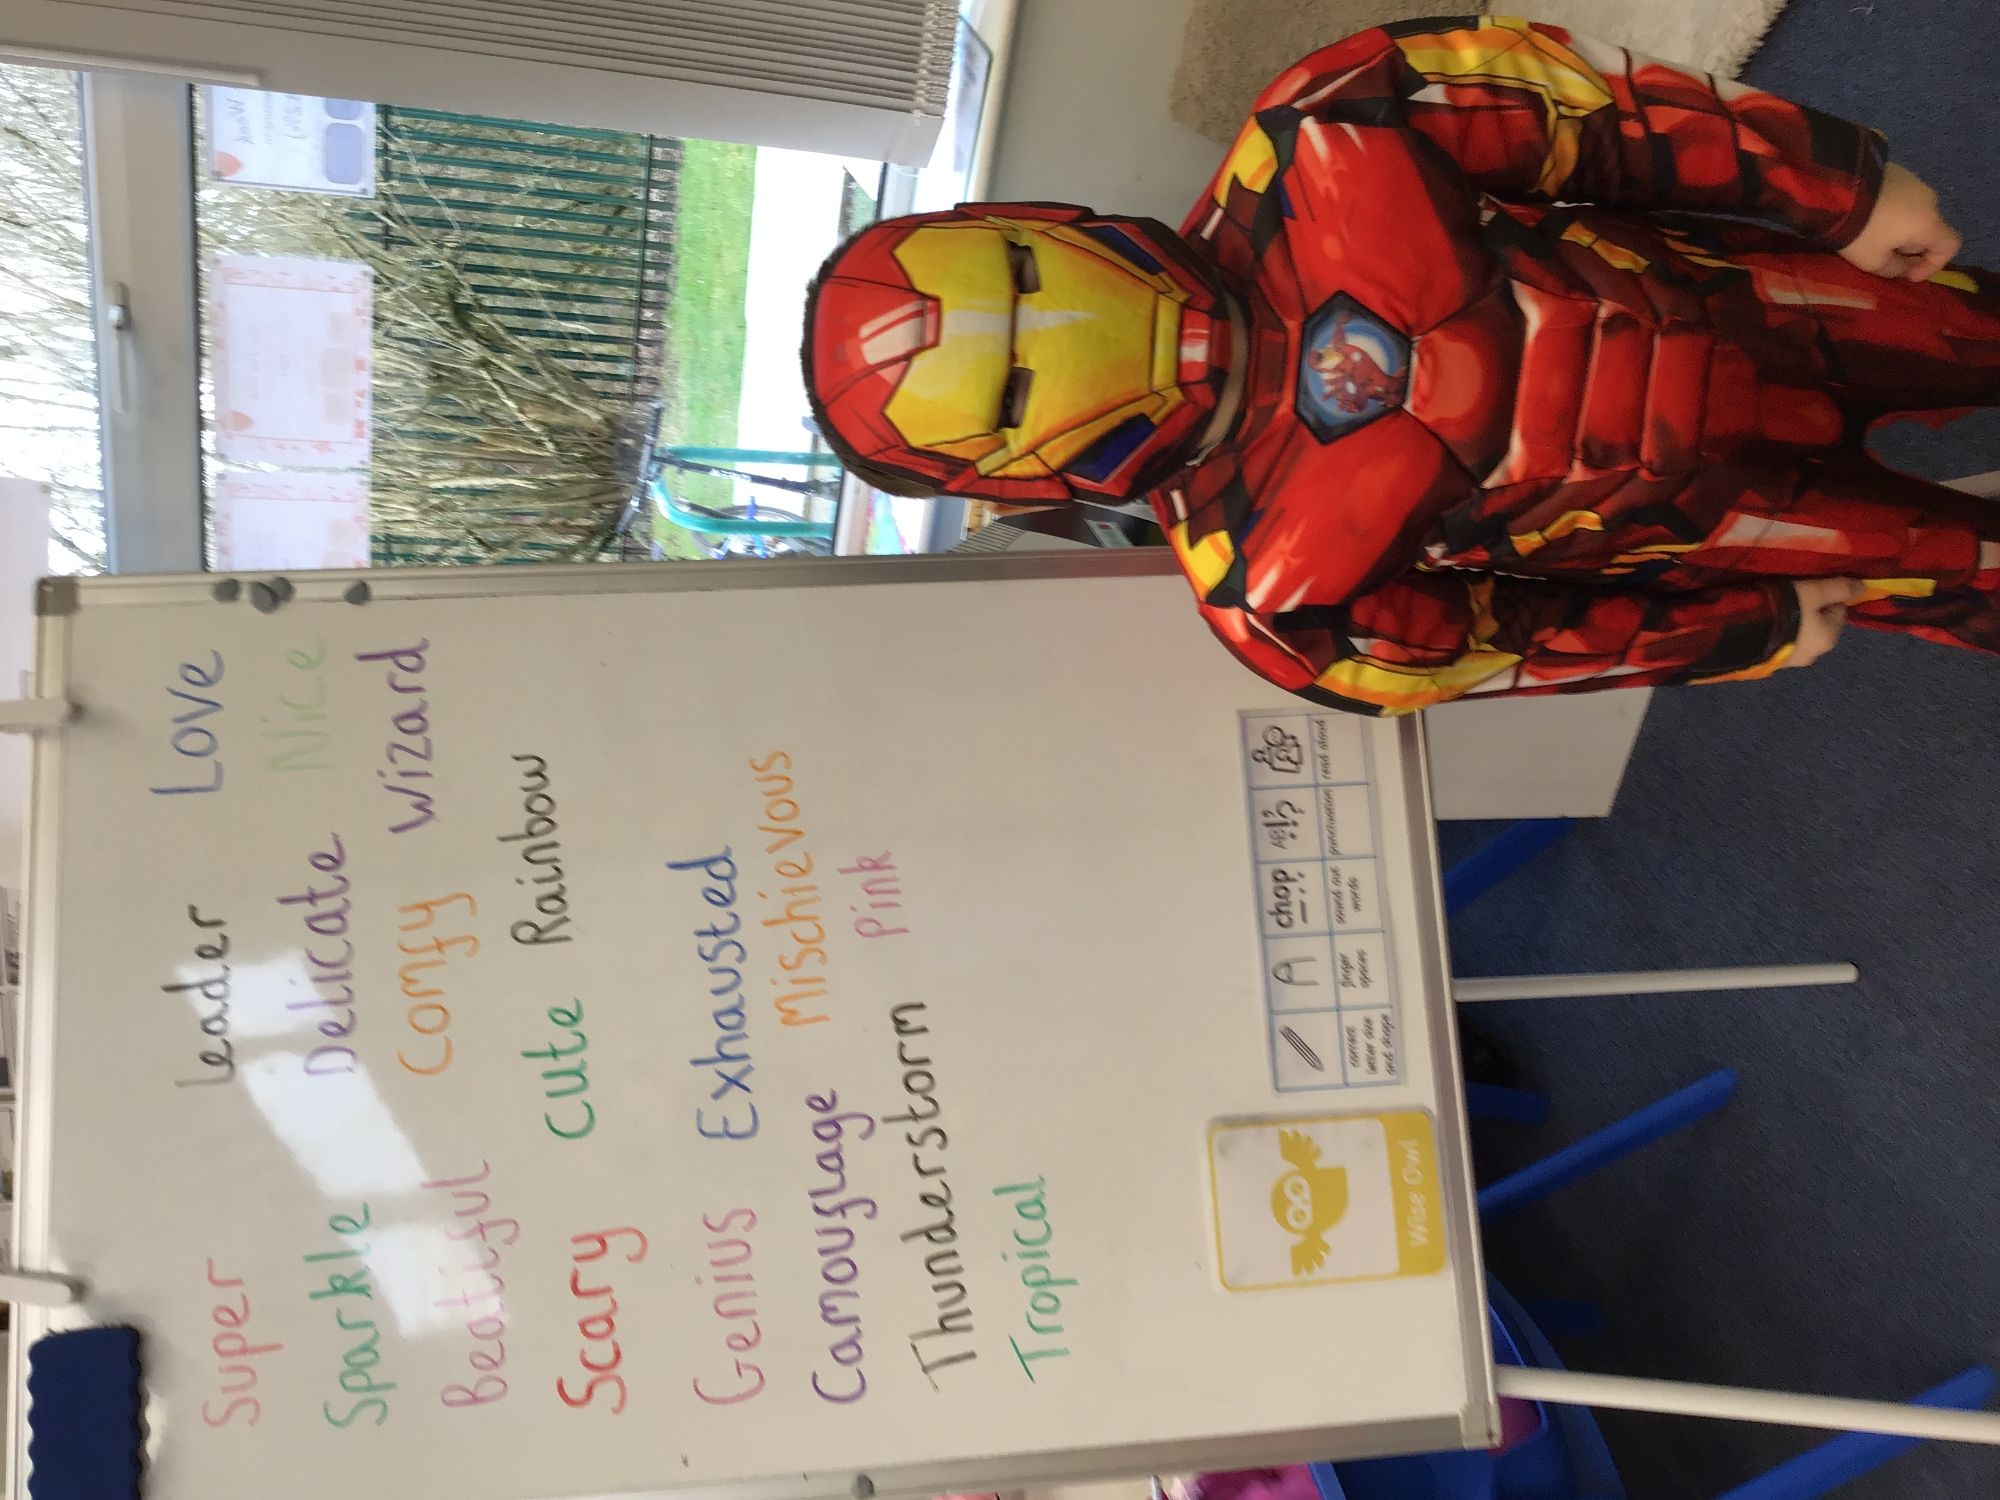 Super Leader Love
Sparkle Delicate Nice
Beatiful Comfy Wizard
Scary Cute Rainbow
Genius Exhausted
Camouflage Mischievous
Thunderstorm Pink
Tropical
Wise Owl
A chop AB!?
correct letter size and shape
finger spaces
sound out words
punctuation
read aloud